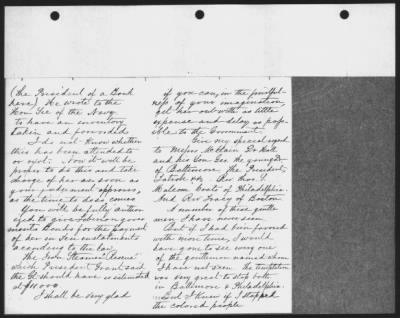 (the President of a Bank
here) He wrote to the
Hon Sec of the Navy
to have an inventory
taken and forwarded
I do not know whether
this has been attended to
or not. Now it will be
proper to do this and take
charge of her as soon as
your judgement approves,
as the time to do so comes
You will be fully author
ized to give Liberian govern
ments Bonds for the payment
of her in Ten instalments
According to the law,
The Iron Steamer "
which President Grant said
the Gt should have is estimated
at $11000
I shall be very glad
if you can, in the fruitful-
ness of your imagination,
get her out with as little
expense and delay as poss
ible to the Government.
Give my special regard
to Messrs McLain Dr Hall
and his Son Geo. the younger Dr
of Baltimore, the President,
Latrobe Rev. Thos. S.
Malcom Coats of Philadelphia.
And Rev Tracy of Boston.
A number of these gentle
men I have never seen
But if I had been favored
with more time, I would
have gone to see every one
of the gentlemen named whom
I have not seen the temptation
was very great to stop both
in Baltimore & Philadelphia.
But I knew if I stopped
the colored people